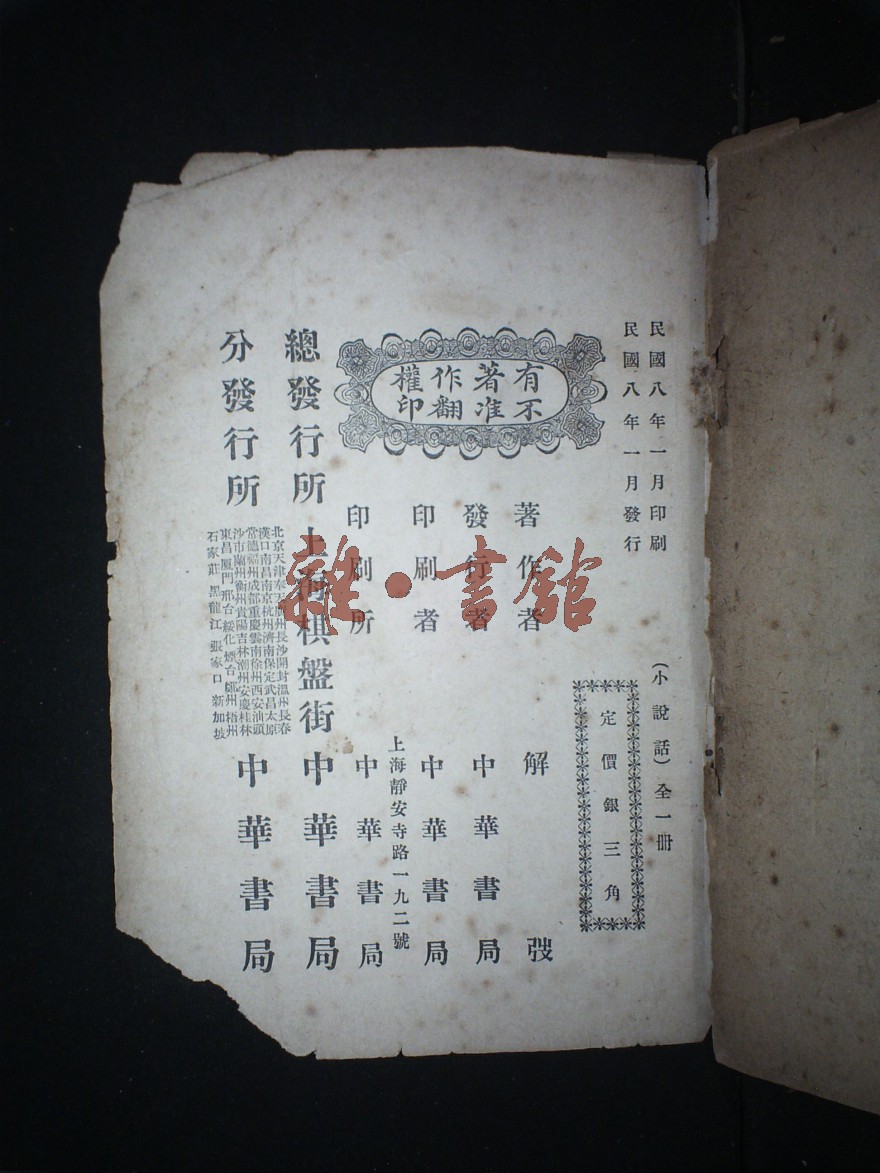 民國八年一月印刷
民國八年一月發行
(小說話)全一冊
定價銀三角
有著作權
不准翻印
著作者 解弢
發行者 中華書局
印刷者 中華書局
印刷所 上海靜安寺路一九二號 中華書局
總發行所 上海棋盤街 中華書局
分發行所
北京天津奉天州長沙開封溫州長春
漢口南昌南京杭州濟南保定武昌太原
常德福州成都重慶雲南徐州西安汕頭
沙市蘭州衡州貴陽吉林潮州安慶桂林
東昌厦門邢台綏化煙台鄭州梧州
石家莊黑龍江張家口新加坡
中華書局
雜·書館